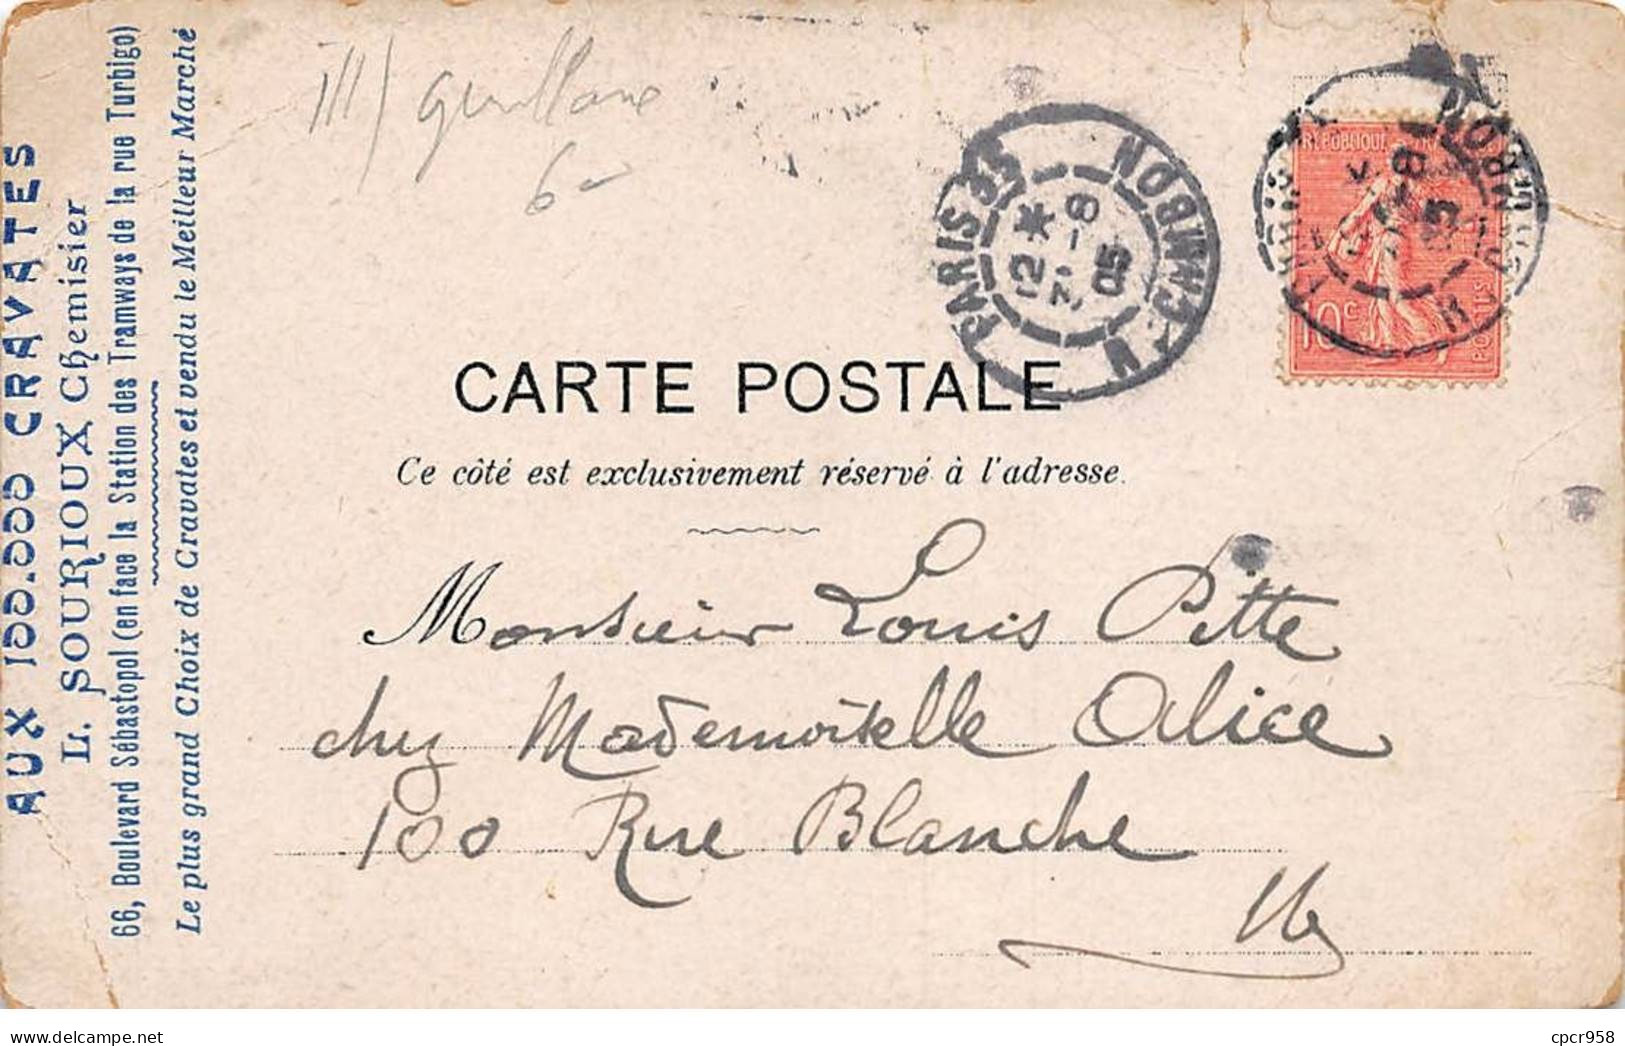 AUX 100.000 CRAVATES
L. SOURIOUX Chemisier
66, Boulevard Sébastopol (en face la Station des Tramways de la rue Turbigo)
Le plus grand Choix de Cravates et vendu le Meilleur Marché
6
PARIS 35
12 * 7-8 05
R. CAMBON
RÉPUBLIQUE
10c
POSTES
CARTE POSTALE
Ce côté est exclusivement réservé à l'adresse.
Monsieur Louis Pitte
chez Mademoiselle Alice
100 Rue Blanche
cpcr958